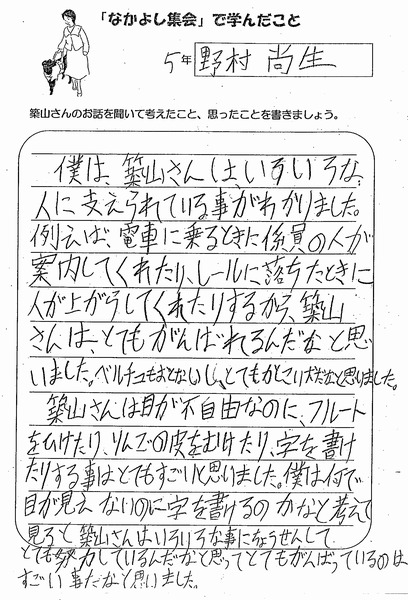 「なかよし集会」で学んだこと
5年 野村 尚生
築山さんのお話を聞いて考えたこと、思ったことを書きましょう。
僕は、築山さんは、いろいろな
人に支えられている事がわかりました。
例えば、電車に乗るときに係員の人が
案内してくれたり、レールに落ちたときに
人が上がらしてくれたりするから、築山
さんは、とてもがんばれるんだなと思い
いました。ベルチュもおとなしいし、とてもかっこいい犬だなと思いました。
築山さんは目が不自由なのに、フルート
をひけたり、りんごの皮をむけたり、字を書け
たりする事はとてもすごいと思いました。僕は何で
目が見えないのに字を書けるのかなと考えて
見ると築山さんはいろいろな事にちょうせんして
とても努力しているんだなと思ってとてもがんばっているのは
すごい事だなと思いました。